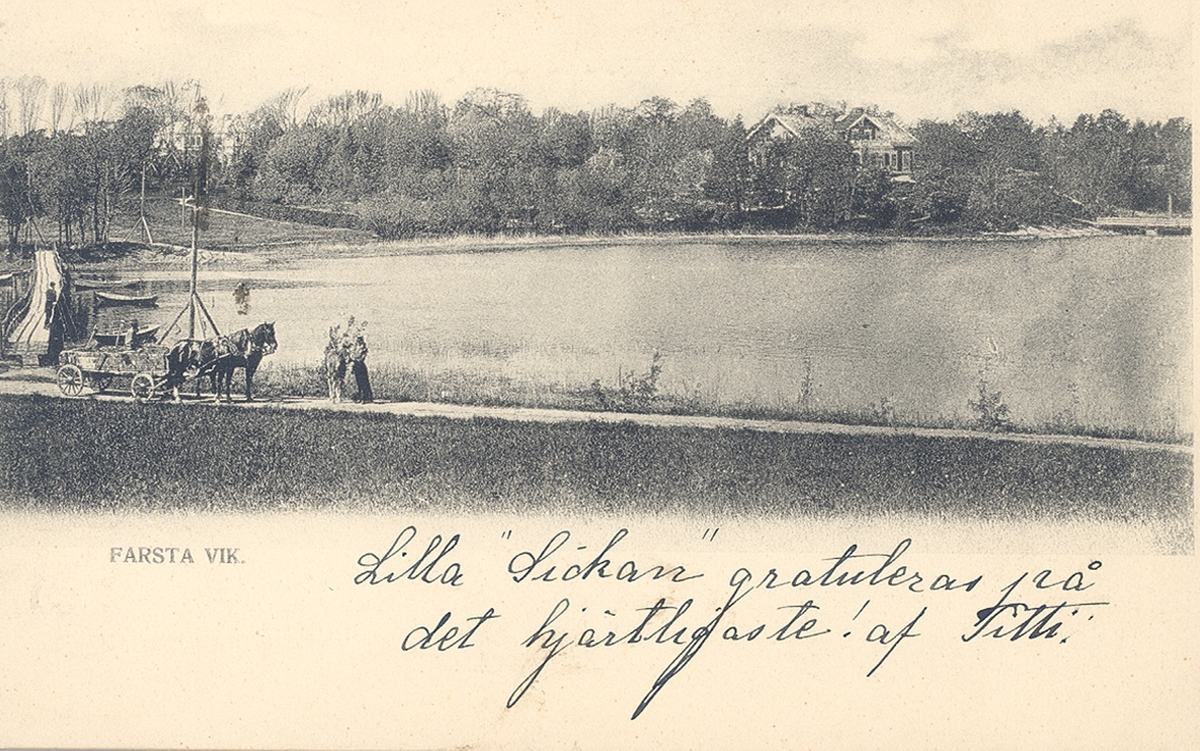 FARSTA VIK.
Lilla "Sickan" gratuleras på
det hjärtligaste! af Titti!